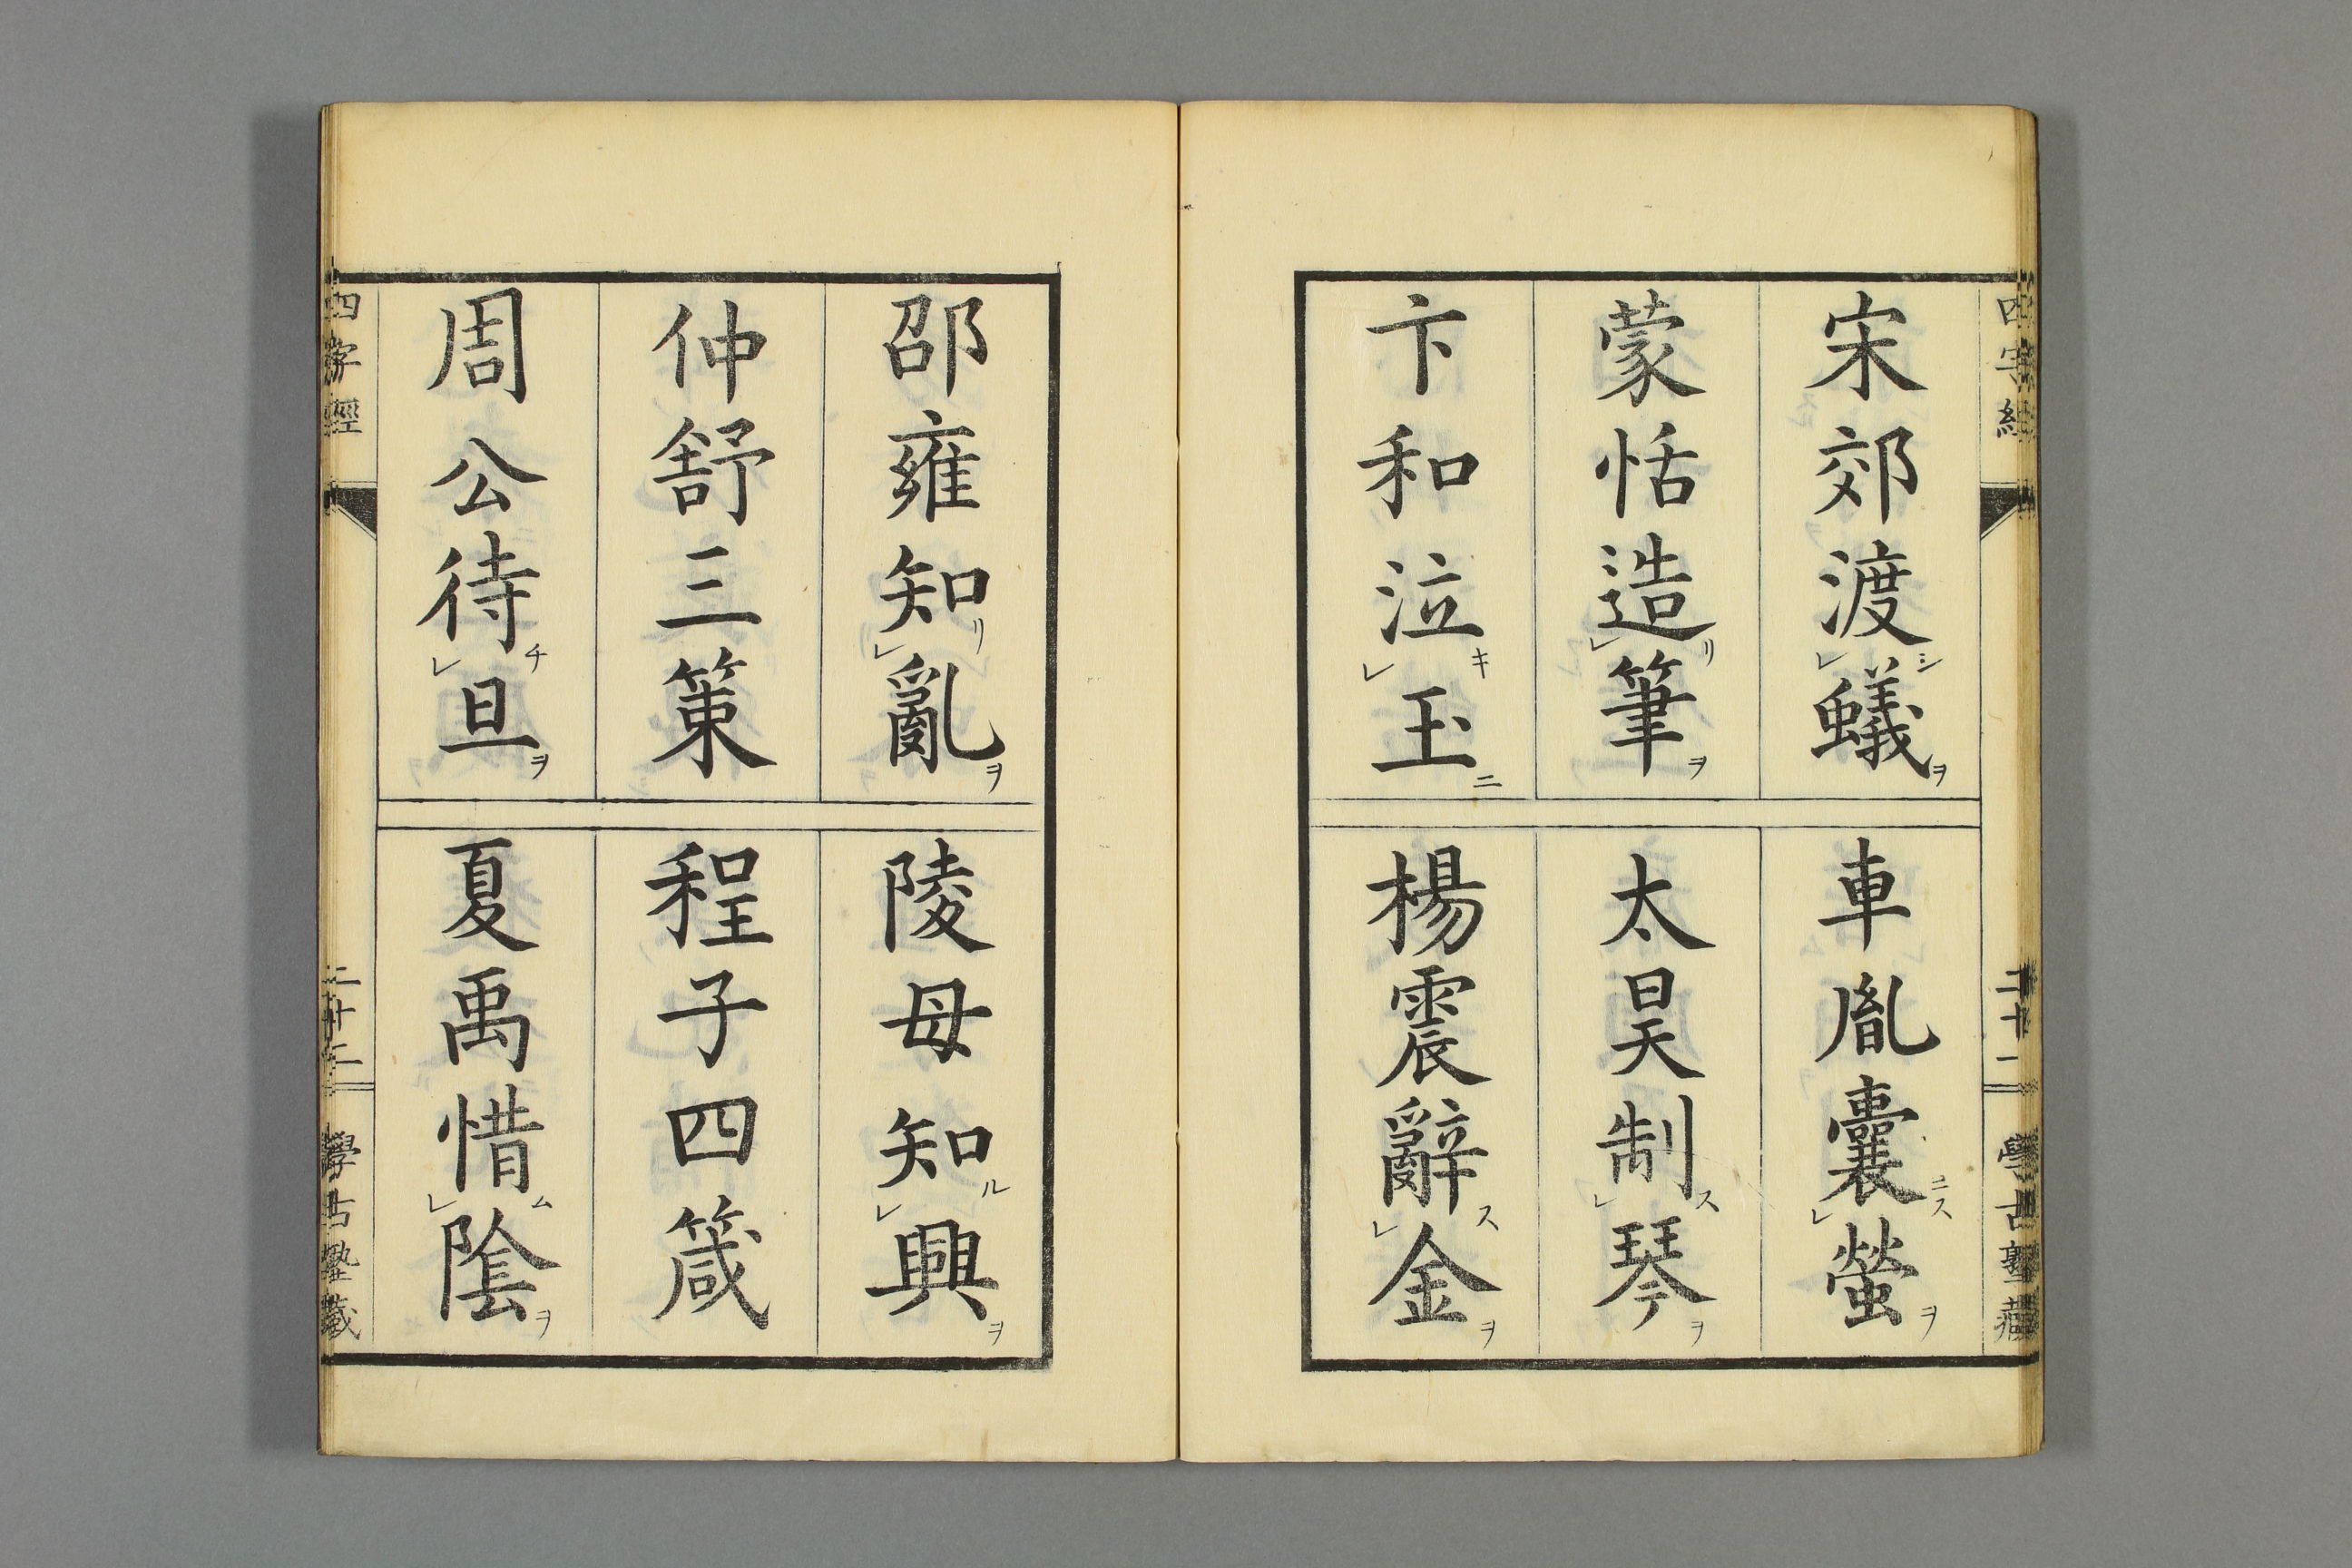 四字經
二十一
學古塾藏
宋郊渡シレ蟻ヲ
車胤囊ニスレ螢ヲ
蒙恬造リレ筆ヲ
太昊制スレ琴ヲ
卞和泣キレ玉ニ
楊震辭スレ金ヲ
邵雍知リレ亂ヲ
陵母知ルレ興ヲ
仲舒三策
程子四箴
周公待チレ旦ヲ
夏禹惜ムレ陰ヲ
四字經
二十二
學古塾藏